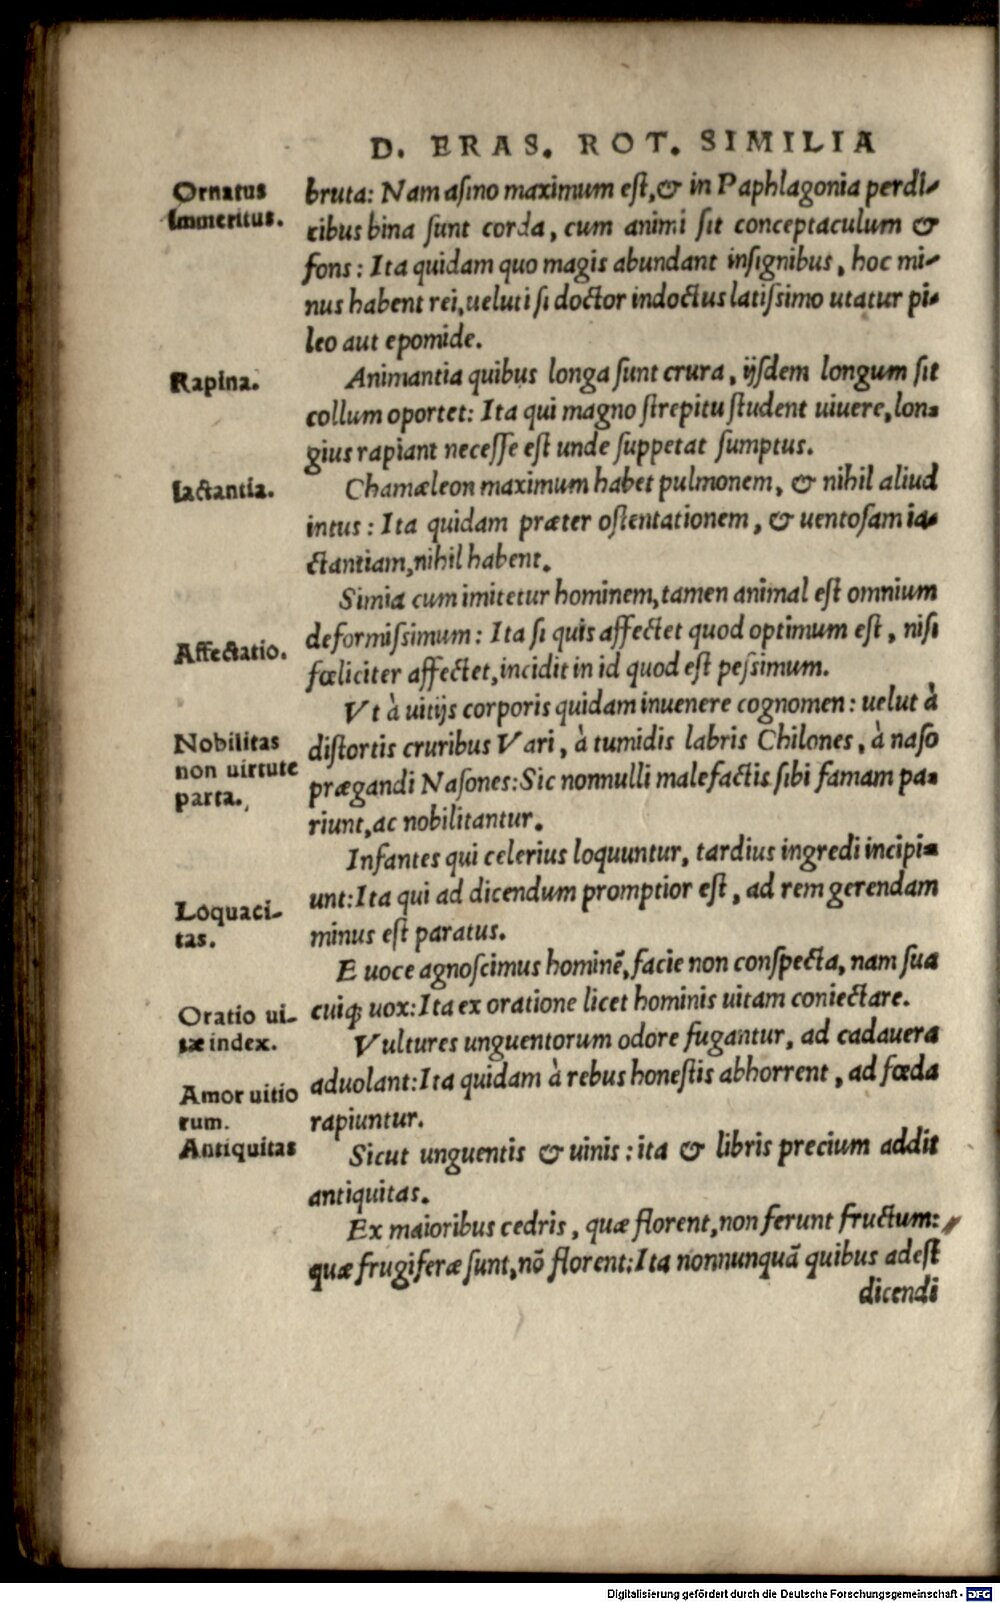 D. ERAS. ROT. SIMILIA
Ornatus
immeritus.
bruta: Nam asino maximum est, & in Paphlagonia perdi-
cibus bina sunt corda, cum animi sit conceptaculum &
fons: Ita quidam quo magis abundant insignibus, hoc mi-
nus habent rei, ueluti si doctor indoctus latissimo utatur pi-
leo aut epomide.
Rapina.
Animantia quibus longa sunt crura, ijsdem longum sit
collum oportet: Ita qui magno strepitu student uiuere, lon-
gius rapiant necesse est unde suppetat sumptus.
Iactantia.
Chamæleon maximum habet pulmonem, & nihil aliud
intus: Ita quidam præter ostentationem, & uentosam ia-
ctantiam, nihil habent.
Simia cum imitetur hominem, tamen animal est omnium
Affectatio.
deformissimum: Ita si quis affectet quod optimum est, nisi
fœliciter affectet, incidit in id quod est pessimum.
Vt à uitijs corporis quidam inuenere cognomen: uelut à
Nobilitas
non uirtute
parta.
distortis cruribus Vari, à tumidis labris Chilones, à naso
prægandi Nasones: Sic nonnulli malefactis sibi famam pa-
riunt, ac nobilitantur.
Infantes qui celerius loquuntur, tardius ingredi incipi-
Loquaci-
tas.
unt: Ita qui ad dicendum promptior est, ad rem gerendam
minus est paratus.
E uoce agnoscimus hominē, facie non conspecta, nam sua
Oratio ui-
tæ index.
cuiq; uox: Ita ex oratione licet hominis uitam coniectare.
Vultures unguentorum odore fugantur, ad cadauera
Amor uitio
rum.
aduolant: Ita quidam à rebus honestis abhorrent, ad fœda
rapiuntur.
Antiquitas
Sicut unguentis & uinis: ita & libris precium addit
antiquitas.
Ex maioribus cedris, quæ florent, non ferunt fructum:
quæ frugiferæ sunt, nō florent: Ita nonnunquā quibus adest
dicendi
Digitalisierung gefördert durch die Deutsche Forschungsgemeinschaft - DFG